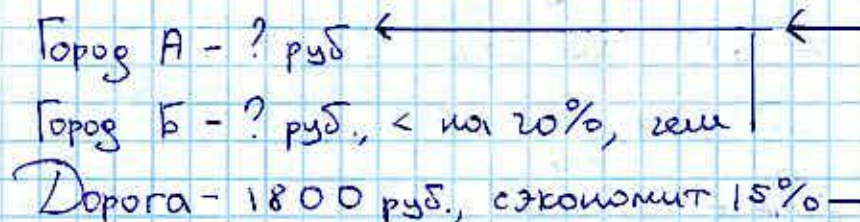 Город А - ? руб
Город Б - ? руб., < на 20%, чем
Дорога - 1800 руб., сэкономит 15%